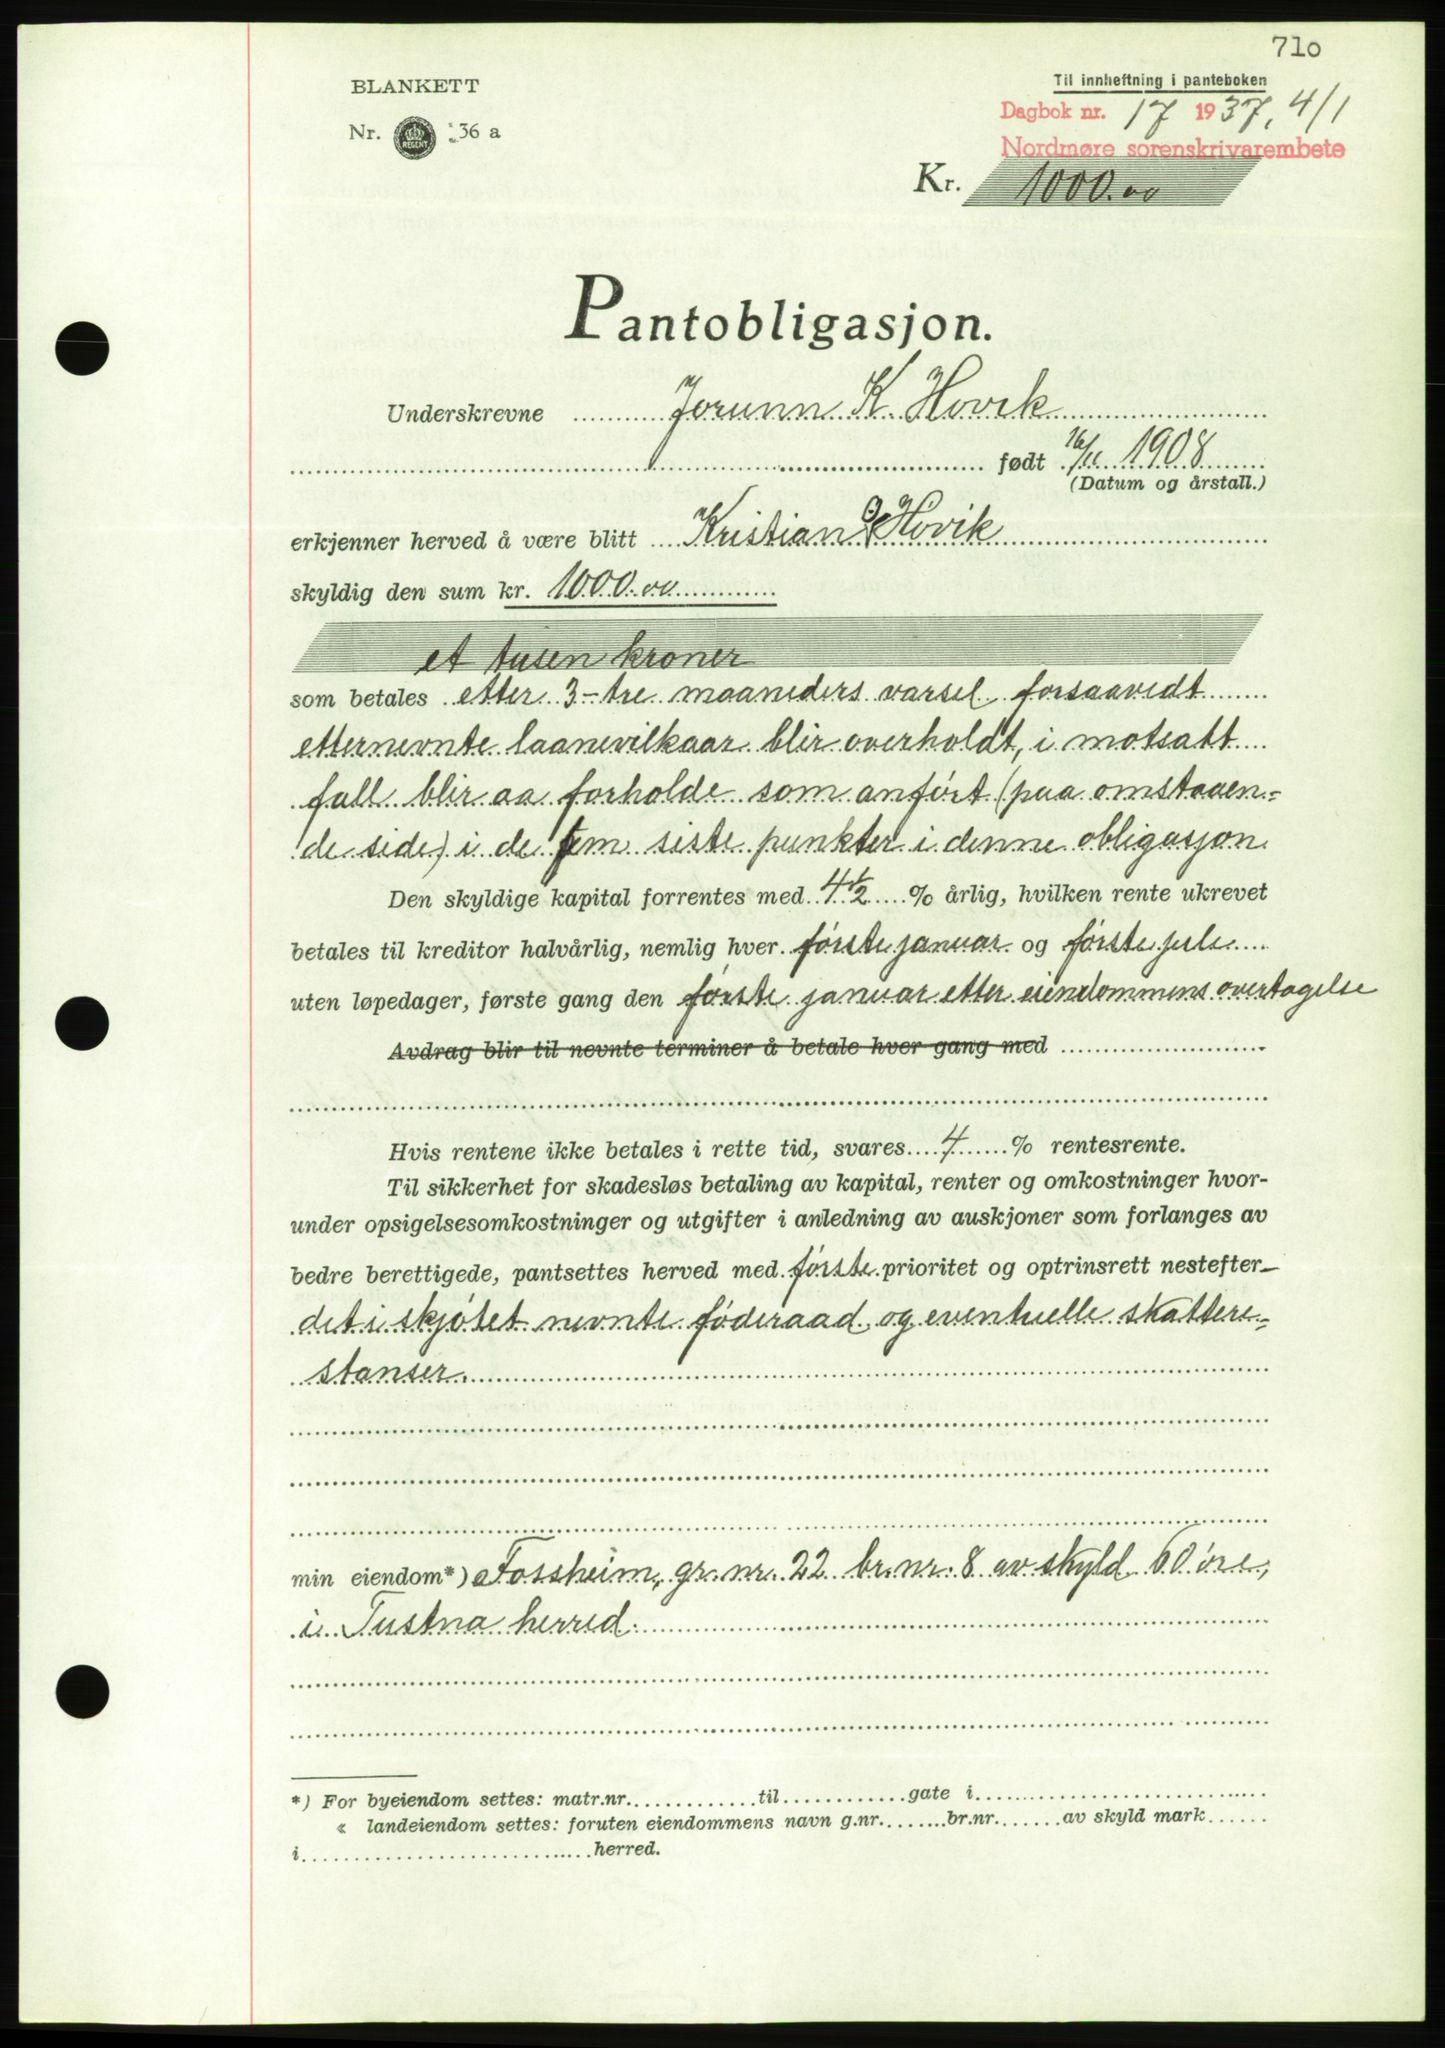 710
BLANKETT
Til innheftning i panteboken
Nr. REGENT 36 a
Dagbok nr. 17 1937, 4/1
Nordmøre sorenskrivarembete
Kr. 1000.00
Pantobligasjon.
Underskrevne Jorunn K. Hovik
født 16/11 1908
(Datum og årstall.)
erkjenner herved å være blitt Kristian O Hovik
skyldig den sum kr. 1000.00
et tusen kroner
som betales etter 3-tre maaneders varsel forsaavidt
etternevnte laanevilkaar blir overholdt, i motsatt
fall blir aa forholde som anført (paa omstaaen-
de side) i de fem siste punkter i denne obligasjon.
Den skyldige kapital forrentes med 4 1/2 % årlig, hvilken rente ukrevet
betales til kreditor halvårlig, nemlig hver første januar og første jule
uten løpedager, første gang den første januar etter eiendommens overtagelse
Avdrag blir til nevnte terminer å betale hver gang med
Hvis rentene ikke betales i rette tid, svares 4 % rentesrente.
Til sikkerhet for skadesløs betaling av kapital, renter og omkostninger hvor-
under opsigelsesomkostninger og utgifter i anledning av auksjoner som forlanges av
bedre berettigede, pantsettes herved med første prioritet og optrinsrett nestefter
det i skjøtet nevnte føderaad og eventuelle skattere-
stanser.
min eiendom*) Fossheim, gr. nr. 22 br. nr. 8 av skyld 60 øre,
i Tustna herred.
*) For byeiendom settes: matr.nr. til gate i
« landeiendom settes: foruten eiendommens navn g.nr. br.nr. av skyld mark
i herred.